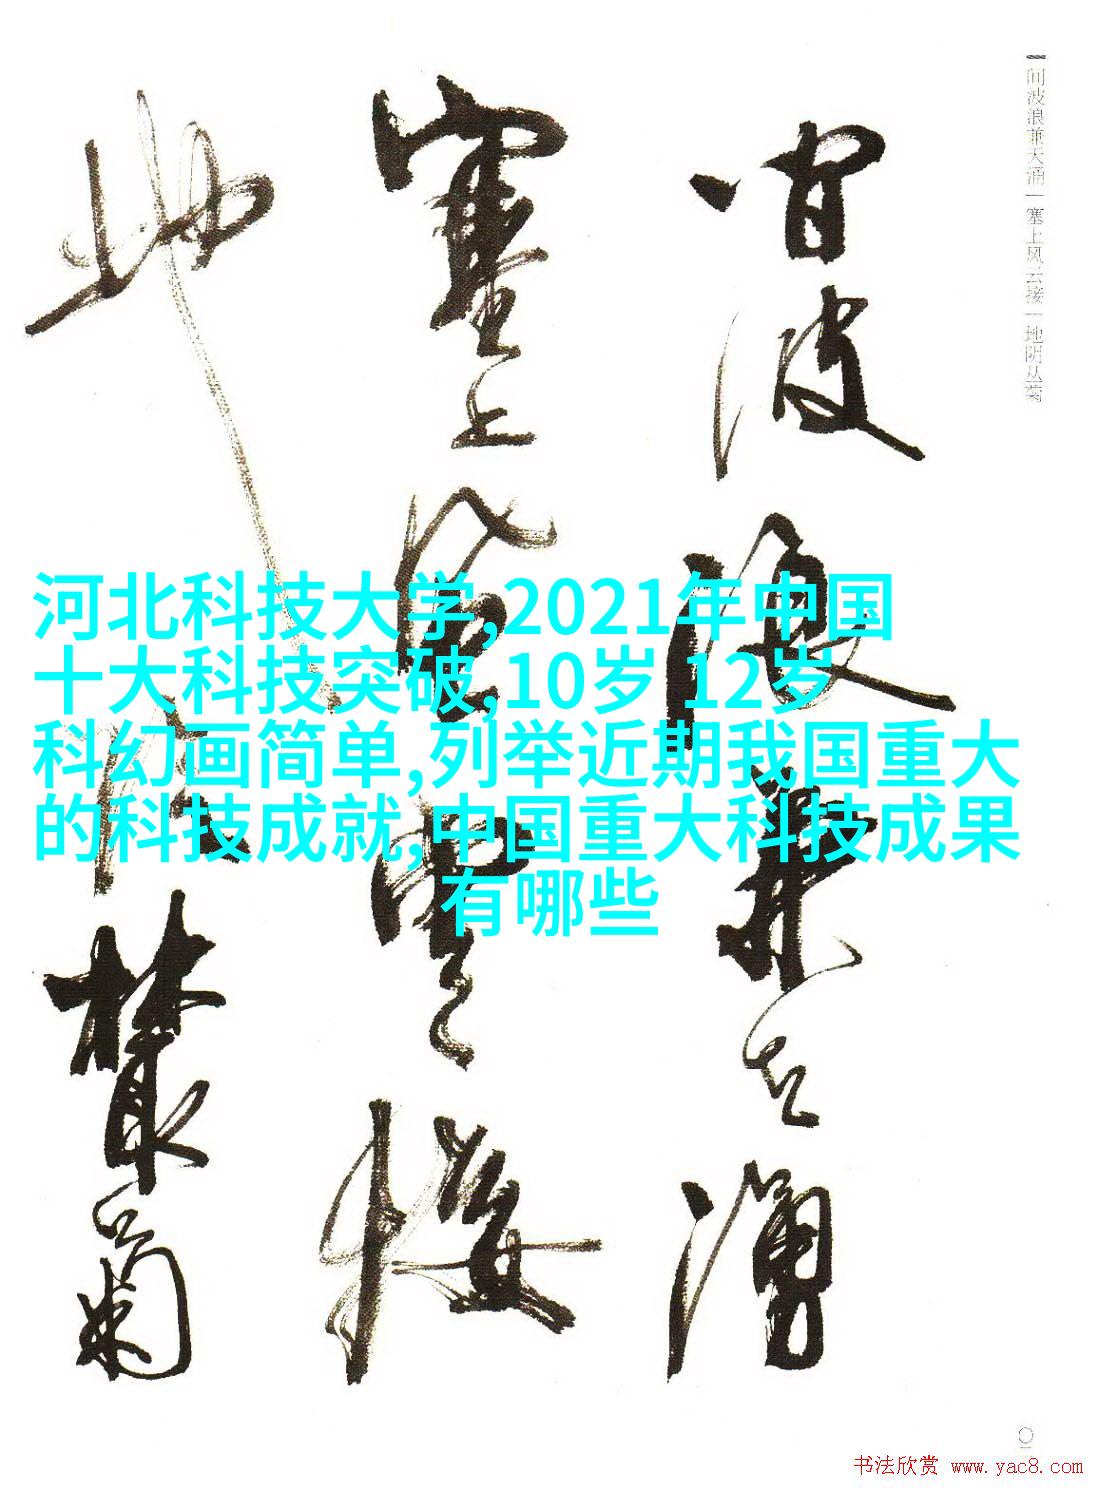 间波浪兼天涌一塞上风云接一地阴丛菊
间波浪兼天涌
塞上风云接
地阴丛菊
河北科技大学,2021年中国
十大科技突破,10岁 12岁
科幻画简单,列举近期我国重大
的科技成就,中国重大科技成果
有哪些
书法欣赏 www.yac8.com